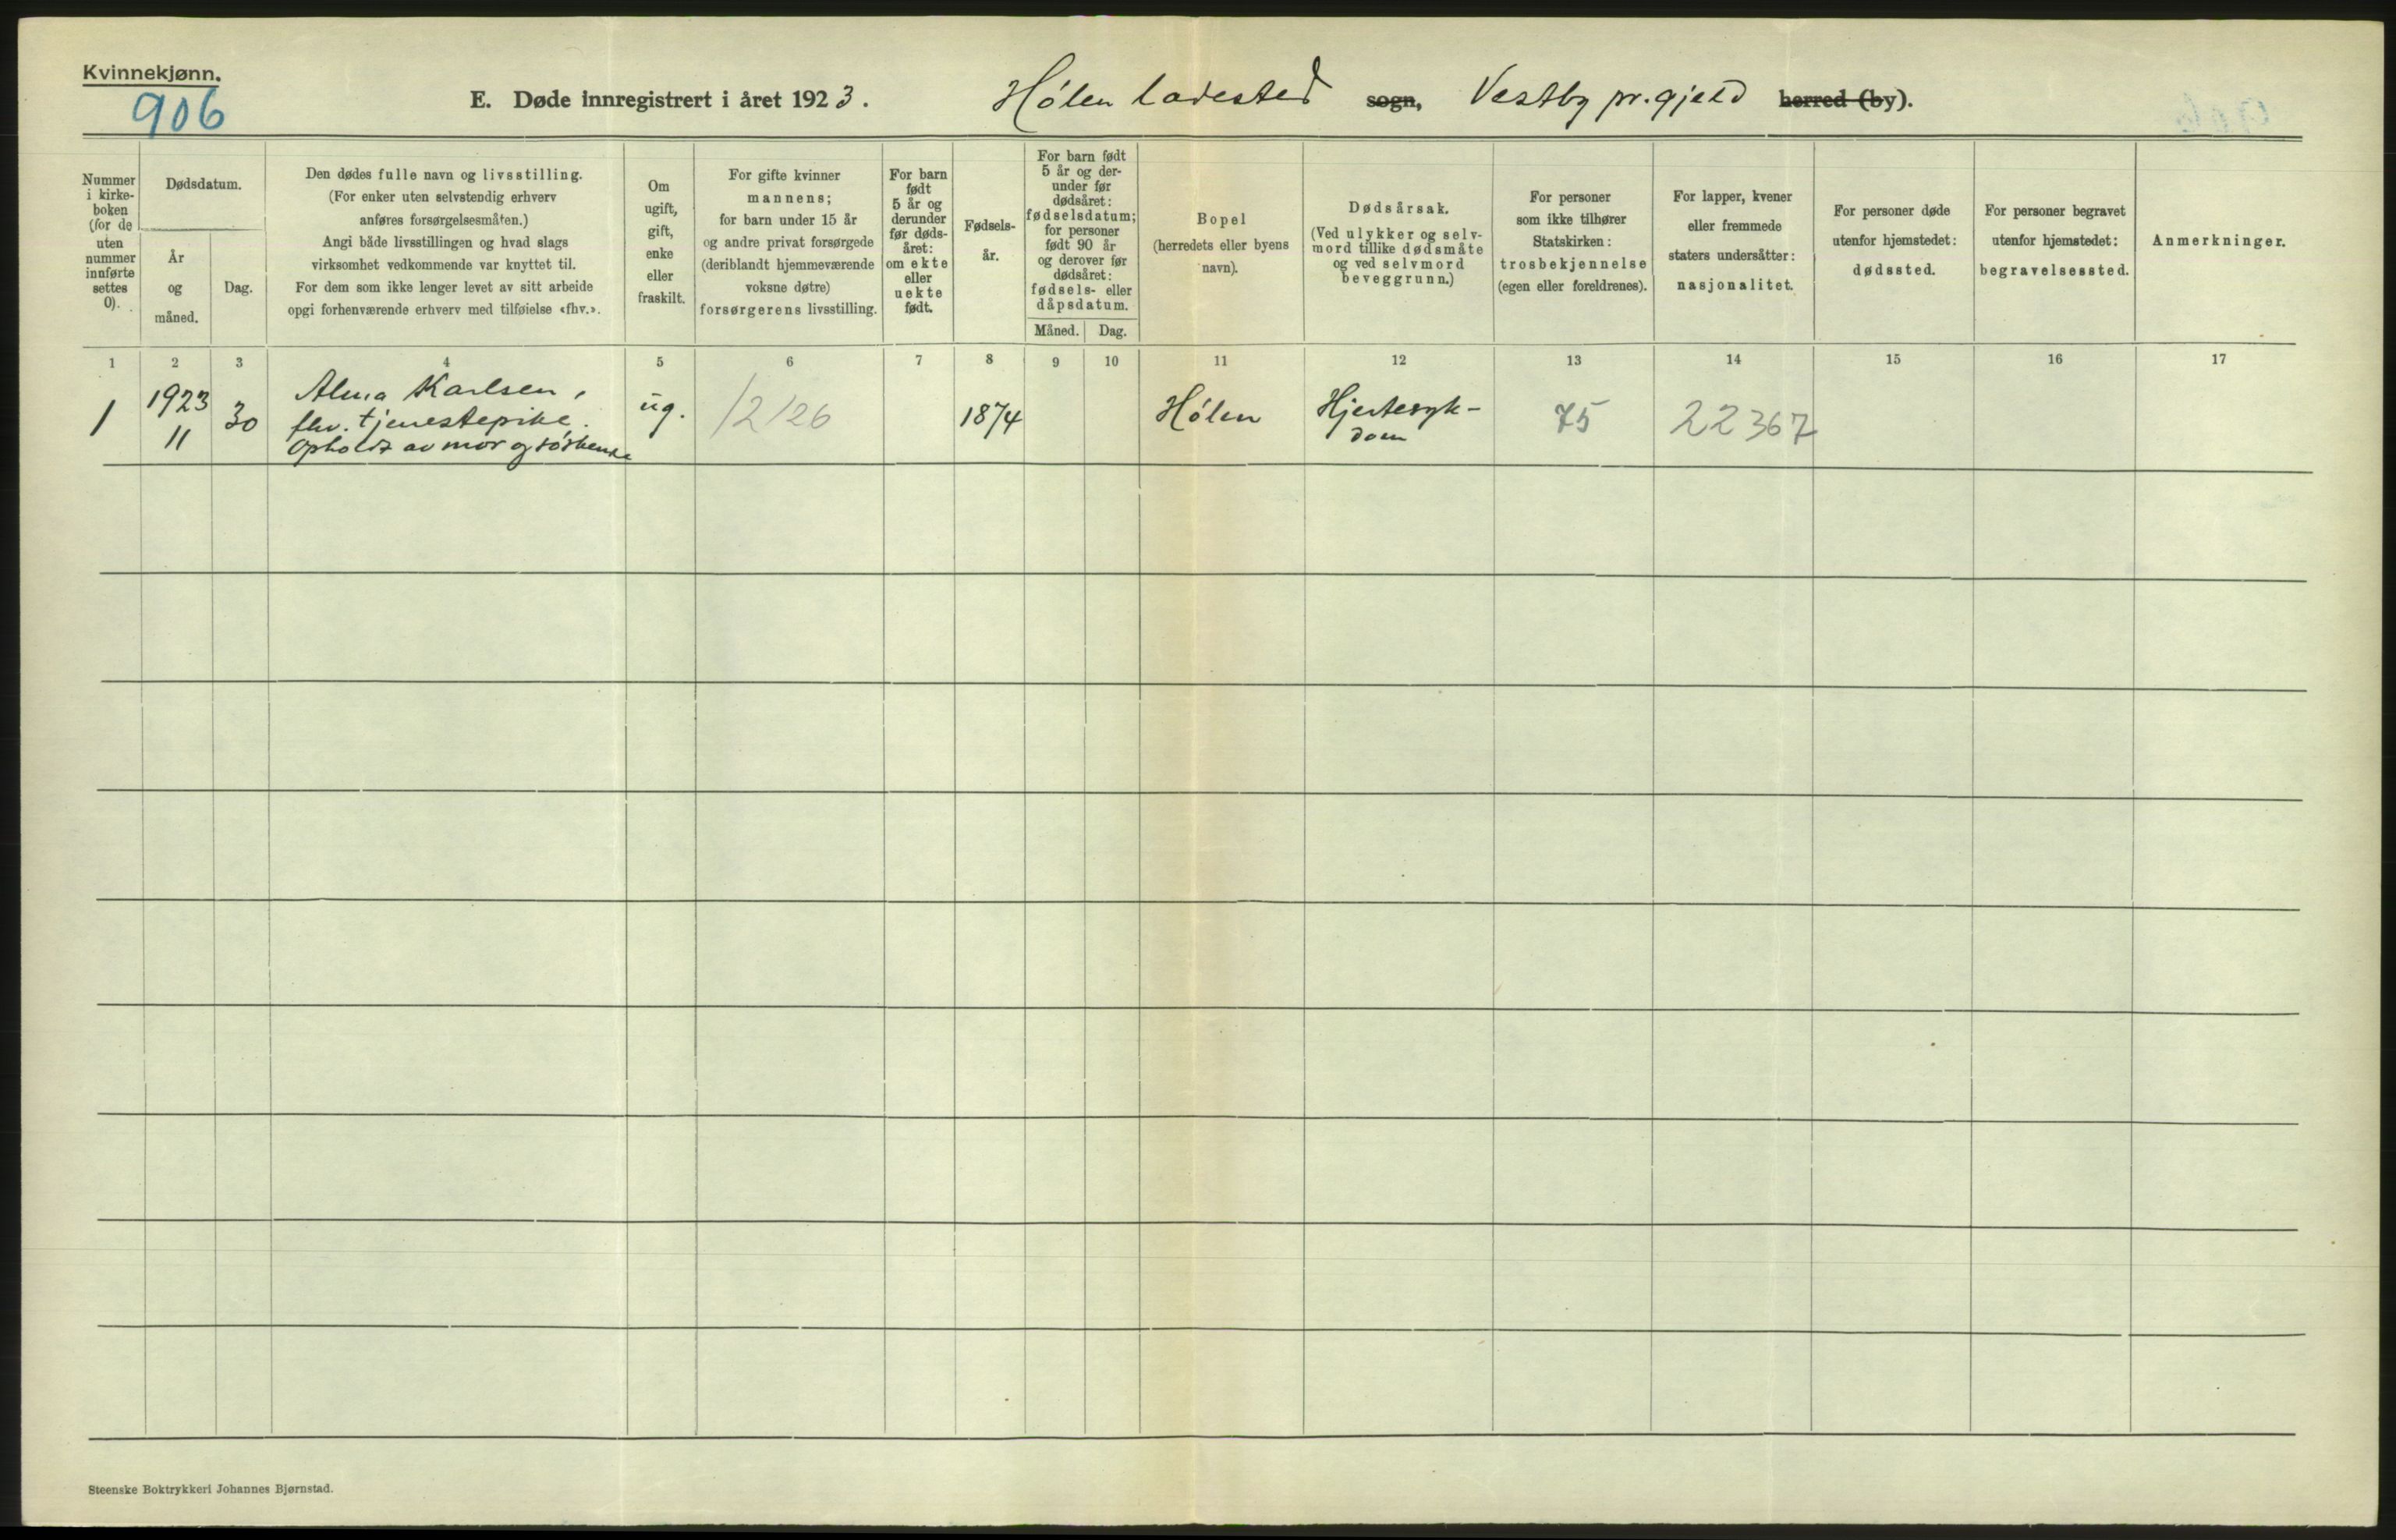 Kvinnekjønn.
906
E. Døde innregistrert i året 1923. Hølen ladested sogn, Vestby pr.gjeld herred (by).
Nummer
i kirke-
boken
(for de
uten
nummer
innførte
settes
0).
Dødsdatum.
År
og
måned.
Dag.
Den dødes fulle navn og livsstilling.
(For enker uten selvstendig erhverv
anføres forsørgelsesmåten.)
Angi både livsstillingen og hvad slags
virksomhet vedkommende var knyttet til.
For dem som ikke lenger levet av sitt arbeide
opgi forhenværende erhverv med tilføielse «fhv.».
Om
ugift,
gift,
enke
eller
fraskilt.
For gifte kvinner
mannens;
for barn under 15 år
og andre privat forsørgede
(deriblandt hjemmeværende
voksne døtre)
forsørgerens livsstilling.
For barn
født
5 år og
derunder
før døds-
året:
om ekte
eller
uekte
født.
Fødsels-
år.
For barn født
5 år og der-
under før
dødsåret:
fødselsdatum;
for personer
født 90 år
og derover før
dødsåret:
fødsels- eller
dåpsdatum.
Måned. Dag.
Bopel
(herredets eller byens
navn).
Dødsårsak.
(Ved ulykker og selv-
mord tillike dødsmåte
og ved selvmord
beveggrunn.)
For personer
som ikke tilhører
Statskirken:
trosbekjennelse
(egen eller foreldrenes).
For lapper, kvener
eller fremmede
staters undersåtter:
nasjonalitet.
For personer døde
utenfor hjemstedet:
dødssted.
For personer begravet
utenfor hjemstedet:
begravelsessted.
Anmerkninger.
1 2 3 4 5 6 7 8 9 10 11 12 13 14 15 16 17
1
1923
11
30
Alma Karlsen,
fhv. tjenestepike.
Opholdt av mor og søskende
ug.
12126
1874
Hølen
Hjertesyk-
dom
75
22367
Steenske Boktrykkeri Johannes Bjørnstad.